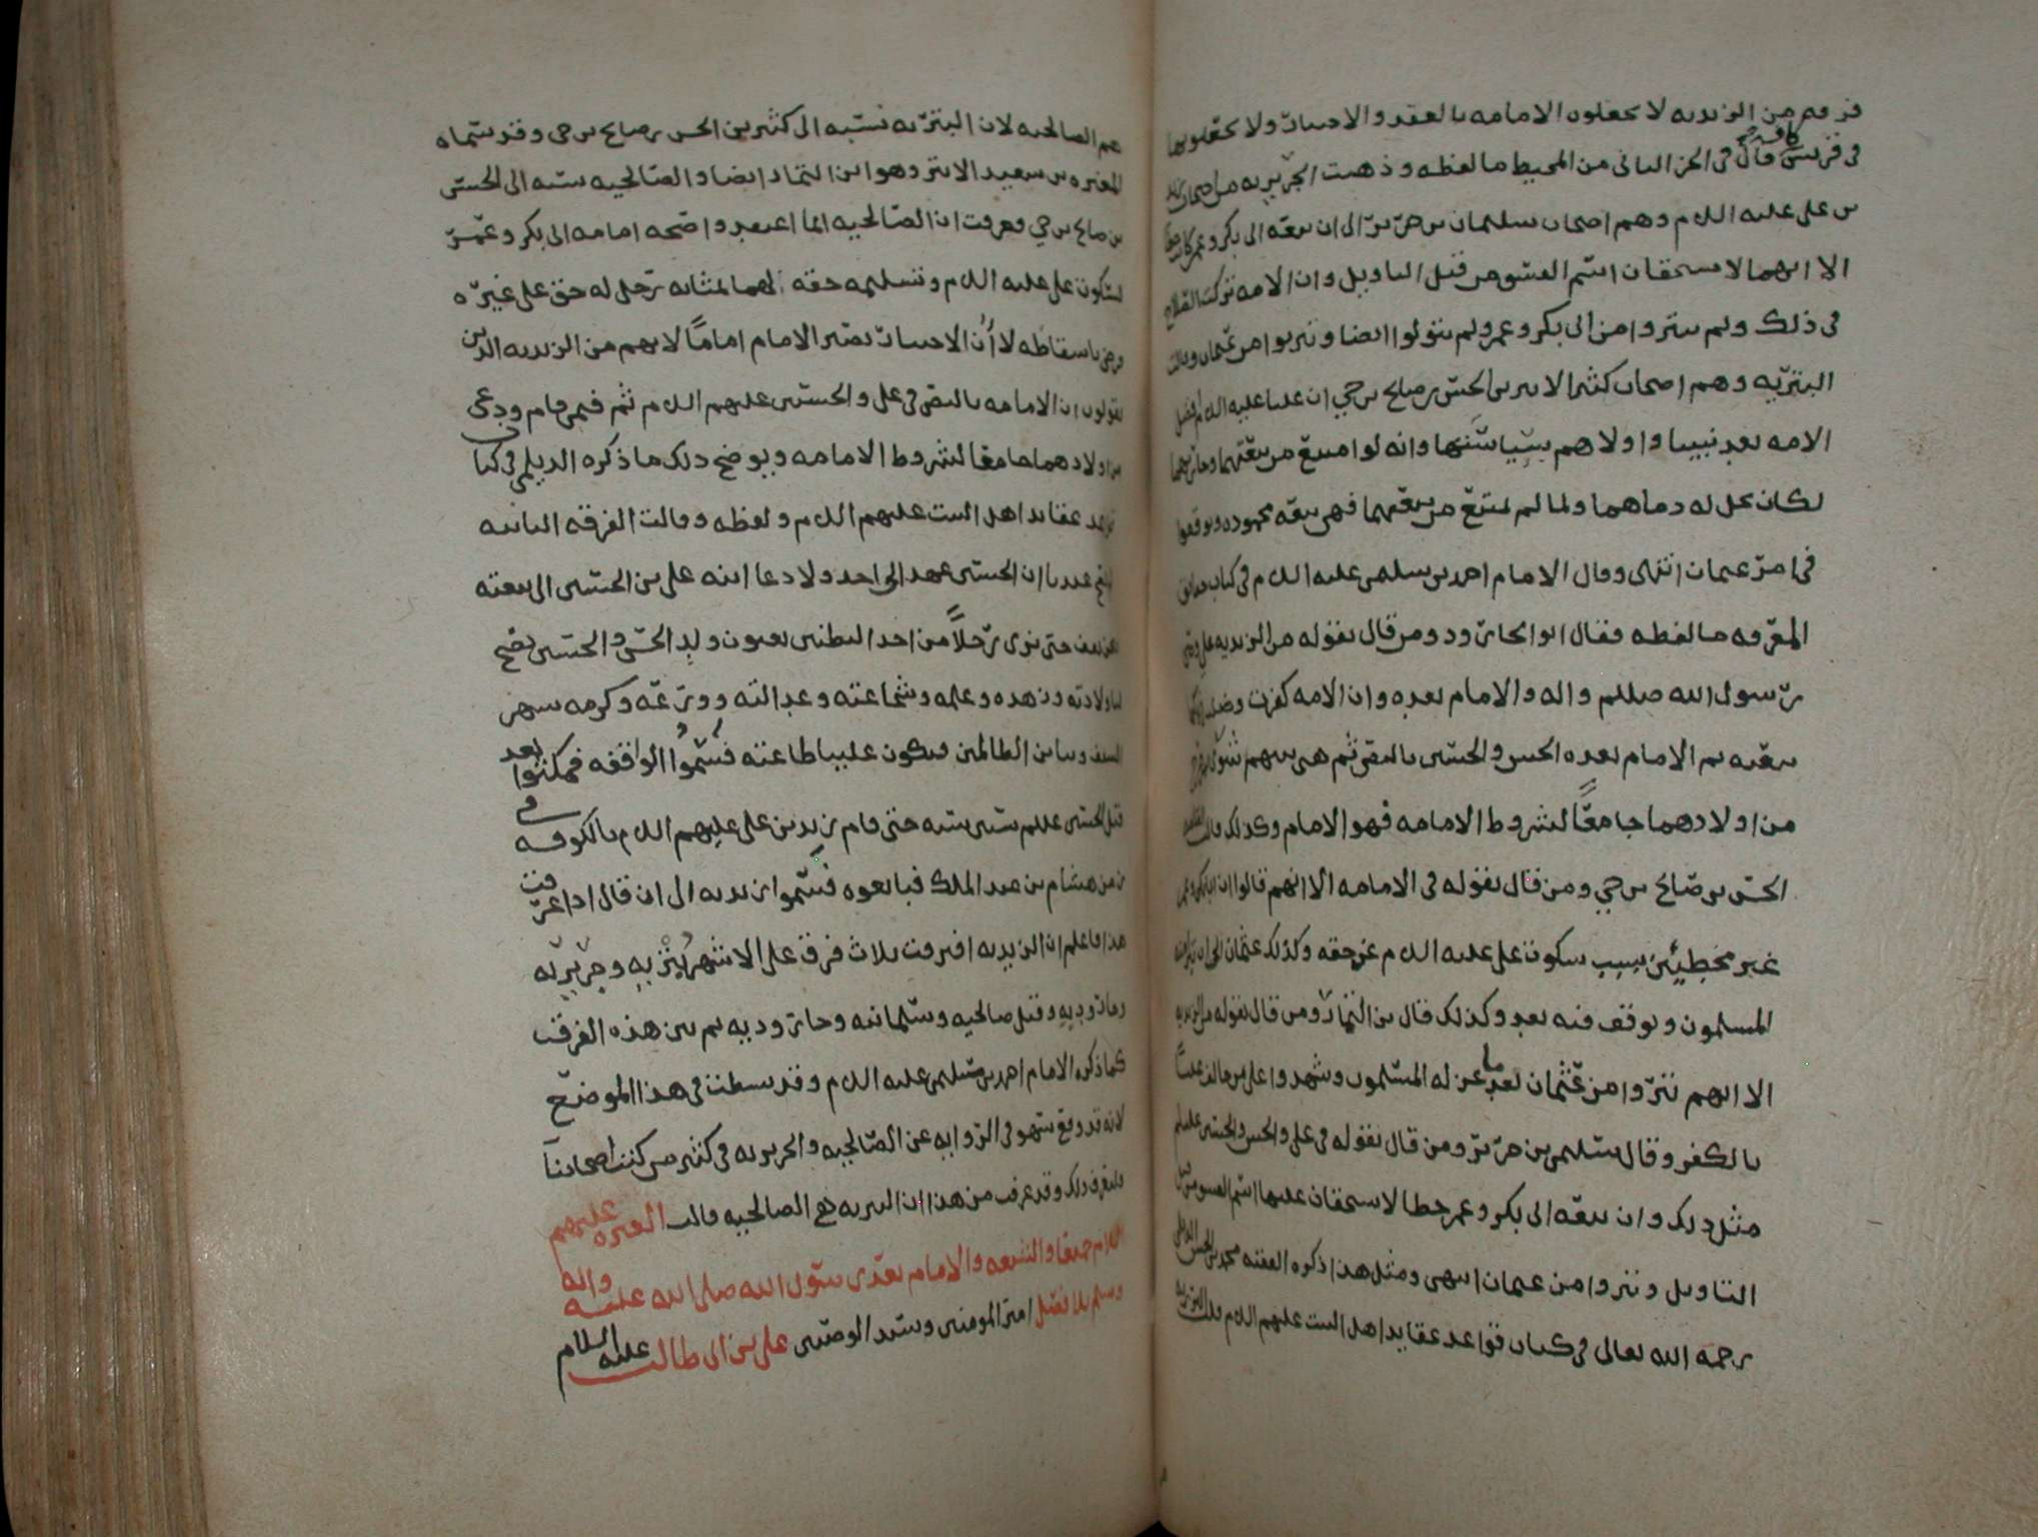 فرقه من الزيديه لا يجعلون الامامه بالعقد والاختيار ولا يجعلونها
في قريش كافه قال في الجز الثاني من المحيط ما لفظه وذهبت الجريريه من اصحاب زيد
بن علي عليه السلام وهم اصحاب سليمان بن جرير الى ان بيعه ابي بكر وعمر كانت خطا
الا انهما لا يستحقان اسم الفسق من قبل التاويل وان الامه تركت الصلاح
في ذلك ولم يتبروا من ابي بكر وعمر ولم يتولوا ايضا وتبروا من عثمان وقالت
البتريه وهم اصحاب كثير الابتر بن الحسن بن صالح بن حي ان عليا عليه السلام افضل
الامه بعد نبينا واولاهم بسياستها وانه لو امتنع من بيعتهما وحاربهما
لكان يحل له دماهما ولما لم يمتنع من بيعتهما فهي بيعه محموده وتوقفوا
في امر عثمان انتهى وقال الامام احمد بن سليمن عليه السلام في كتاب حقائق
المعرفه ما لفظه فقال ابو الجارود ومن قال بقوله من الزيديه علي وصي
رسول الله صللم واله والامام بعده وان الامه كفرت وضلت بتركها
بيعته ثم الامام بعده الحسن والحسين بالنص ثم هي بينهم شورى فمن خرج
من اولادهما جامعًا لشروط الامامه فهو الامام وكذلك قال
الحسن بن صالح بن حي ومن قال بقوله في الامامه الا انهم قالوا ان ابا بكر وعمر
غير مخطيئين بسبب سكوت علي عليه السلام عن حقه وكذلك عثمان الى ان تبرا منه
المسلمون وتوقف فيه بعد وكذلك قال بن التمار ومن قال بقوله من الزيديه
الا انهم تبروا من عثمان بعد ما عزله المسلمون وشهدوا على من خالف عليًا
بالكفر وقال سليمن بن جرير ومن قال بقوله في علي والحسن والحسين عليهم
مثل ذلك وان بيعه ابي بكر وعمر خطا لا يستحقان عليها اسم الفسق من قبل
التاويل وتبروا من عثمان انتهى ومثل هذا ذكره الفقيه محمد بن الحسن الديلمي
رحمه الله تعالى في كتاب قواعد عقايد اهل البيت عليهم السلام
هم الصالحيه لان البتريه نسبه الى كثير بن الحسن بن صالح بن حي وقد سماه
المغيره بن سعيد الابتر وهو ابن التمار ايضا والصالحيه نسبه الى الحسن
بن صالح بن حي وعرفت ان الصالحيه انما اعتقدوا صحه امامه ابي بكر وعمر
لسكوت علي عليه السلام وتسليمه حقه لهما بمثابه رجل له حق على غيره
ورضي باسقاطه لا أن الاختيار يصير الامام امامًا لانهم من الزيديه الذين
يقولون ان الامامه بالنص في علي والحسنين عليهم السلام ثم فيمن قام ودعى
من اولادهما جامعًا لشروط الامامه ويوضح ذلك ما ذكره الديلمي في كتاب
قواعد عقايد اهل البيت عليهم السلام ولفظه وقالت الفرقه الثانيه
لم يصح عندنا ان الحسين عهد الى احد ولا دعا ابنه علي بن الحسين الى بيعته
فنحن نقف حتى نرى رجلاً من احد البطنين يعنون ولد الحسن والحسين تصح
لنا ولادته وزهده وعلمه وشجاعته وعدالته وورعه وكرمه يشهر
السيف ويباين الظالمين فيكون علينا طاعته فسُمّوا الواقفه فمكثوا بعد
قتل الحسين عليلم ستين سنه حتى قام زيد بن علي عليهم السلام بالكوفه في
زمن هشام بن عبد الملك فبايعوه فسموا زيديه الى ان قال اذا عرفت
هذا فاعلم ان الزيديه افترقت ثلاث فرق على الاشهر بتريه وجريريه
وجاروديه وقيل صالحيه وسليمانيه وجاروديه ثم بين هذه الفرق
كما ذكره الامام احمد بن سليمن عليه السلام وقد بسطت في هذا الموضع
لانه قد وقع سهو في الروايه عن الصالحيه والجريريه في كثير من كتب اصحابنا
فليعرف ذلك وقد عرفت من هذا ان البتريه هم الصالحيه قالت العتره عليهم
السلام جميعا والشيعه والامام بعد رسول الله صلى الله عليه واله
وسلم بلا فصل امير المومنين وسيد الوصيين علي بن ابي طالب عليه السلام